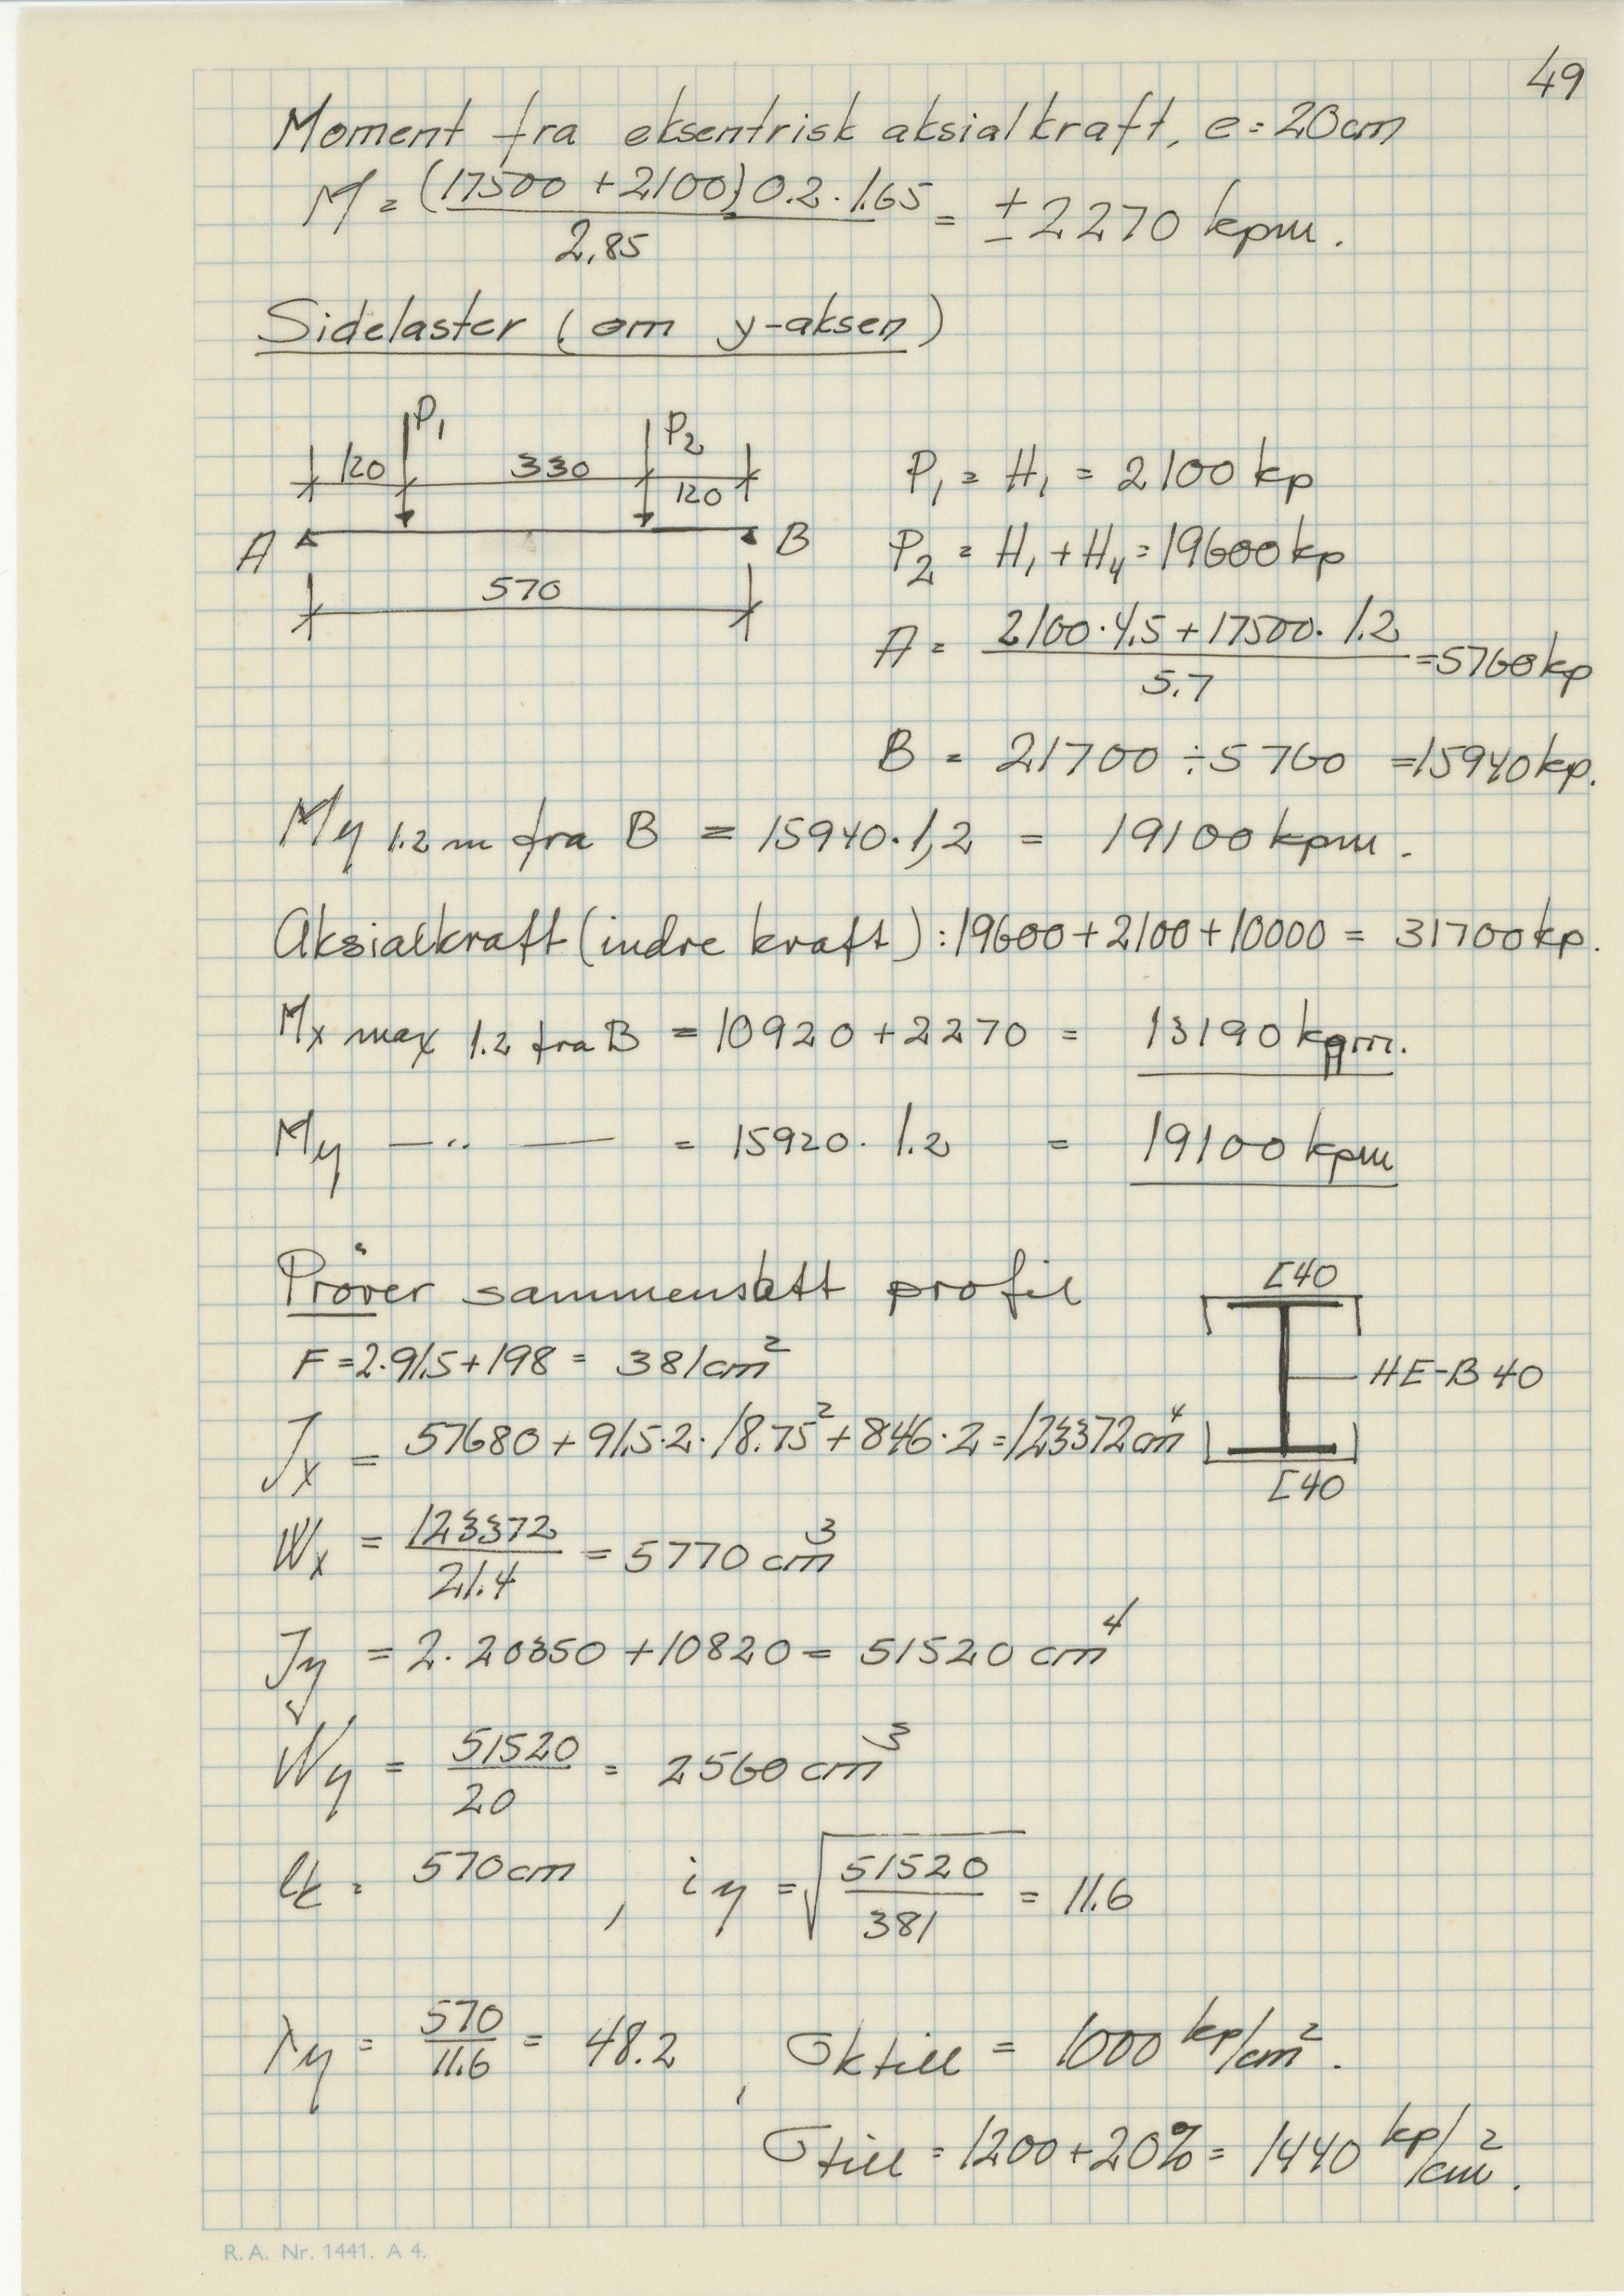 49
Moment fra eksentrisk aksialkraft, e = 20cm
M = (17500 + 2100) 0.2 · 1.65 / 2,85 = ± 2270 kpm.
Sidelaster (om y-aksen)
P1 P2
120 330 120
A B
570
P1 = H1 = 2100 kp
P2 = H1 + H4 = 19600 kp
A = 2100 · 4.5 + 17500 · 1.2 / 5.7 = 5760 kp
B = 21700 ÷ 5760 = 15940 kp.
My 1.2 m fra B = 15940 · 1,2 = 19100 kpm.
Aksialkraft (indre kraft): 19600 + 2100 + 10000 = 31700 kp.
Mx max 1.2 fra B = 10920 + 2270 = 13190 kpm.
My —··— = 15920 · 1.2 = 19100 kpm
Prøver sammensatt profil
[40
HE-B 40
[40
F = 2·91.5 + 198 = 381 cm²
Jx = 57680 + 91.5·2·18.75² + 846·2 = 123372 cm⁴
Wx = 123372 / 21.4 = 5770 cm³
Jy = 2 · 20350 + 10820 = 51520 cm⁴
Wy = 51520 / 20 = 2560 cm³
lk = 570 cm, iy = √ 51520 / 381 = 11.6
λy = 570 / 11.6 = 48.2, σk till = 1000 kp/cm².
σ till = 1200 + 20% = 1440 kp/cm².
R.A. Nr. 1441. A 4.